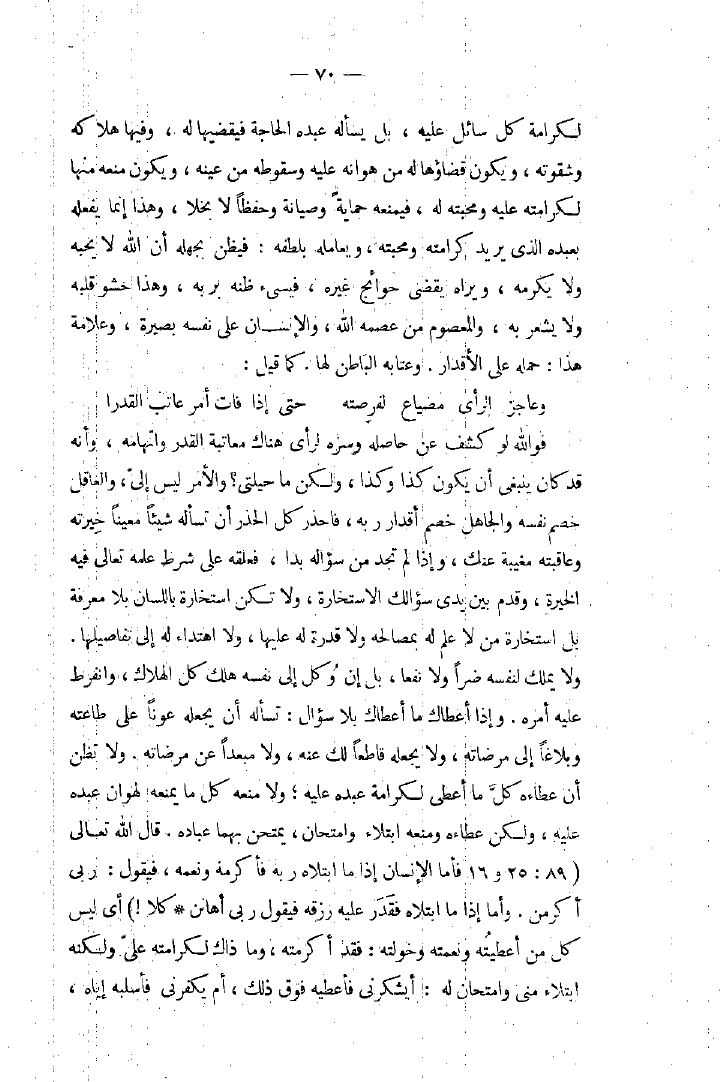 — ٧٠ —
لكرامة كل سائل عليه ، بل يسأله عبده الحاجة فيقضيها له ، وفيها هلاكه
وشقوته ، ويكون قضاؤها له من هوانه عليه وسقوطه من عينه ، ويكون منعه منها
لكرامته عليه ومحبته له ، فيمنعه حماية وصيانة وحفظاً لا بخلا ، وهذا إنما يفعله
بعبده الذى يريد كرامته ومحبته ، ويعامله بلطفه : فيظن بجهله أن الله لا يحبه
ولا يكرمه ، ويراه يقضى حوائج غيره ، فيسىء ظنه بربه ، وهذا حشو قلبه
ولا يشعر به ، والمعصوم من عصمه الله ، والإنسان على نفسه بصيرة ، وعلامة
هذا : حمله على الأقدار . وعتابه الباطن لها . كما قيل :
وعاجز الرأى مضياع لفرصته حتى إذا فات أمر عاتب القدرا
فوالله لو كشف عن حاصله وسره لرأى هناك معاتبة القدر واتهامه ، وأنه
قد كان ينبغى أن يكون كذا وكذا ، ولكن ما حيلتى؟ والأمر ليس إلىّ ، والعاقل
خصم نفسه والجاهل خصم أقدار ربه ، فاحذر كل الحذر أن تسأله شيئاً معيناً خِيرته
وعاقبته مغيبة عنك ، وإذا لم تجد من سؤاله بدا ، فعلقه على شرط علمه تعالى فيه
الخيرة ، وقدم بين يدى سؤالك الاستخارة ، ولا تكن استخارة باللسان بلا معرفة
بل استخارة من لا علم له بمصالحه ولا قدرة له عليها ، ولا اهتداء له إلى تفاصيلها .
ولا يملك لنفسه ضراً ولا نفعا ، بل إن وُكل إلى نفسه هلك كل الهلاك ، وانفرط
عليه أمره . وإذا أعطاك ما أعطاك بلا سؤال : تسأله أن يجعله عوناً على طاعته
وبلاغاً إلى مرضاته ، ولا يجعله قاطعاً لك عنه ، ولا مبعداً عن مرضاته . ولا تظن
أن عطاءه كلَّ ما أعطى لكرامة عبده عليه ؛ ولا منعه كل ما يمنعه لهوان عبده
عليه ، ولكن عطاءه ومنعه ابتلاء وامتحان ، يمتحن بهما عباده . قال الله تعالى
( ٨٩ : ٢٥ و ١٦ فأما الإنسان إذا ما ابتلاه ربه فأكرمة ونعمه ، فيقول : ربى
أكرمن . وأما إذا ما ابتلاه فقَدَر عليه رزقه فيقول ربى أهانن * كلا ! ) أى ليس
كل من أعطيتُه ونعمته وخولته : فقد أكرمته ، وما ذاك لكرامته علىّ ولكنه
ابتلاء منى وامتحان له : أيشكرنى فأعطيه فوق ذلك ، أم يكفرنى فأسلبه إياه ،